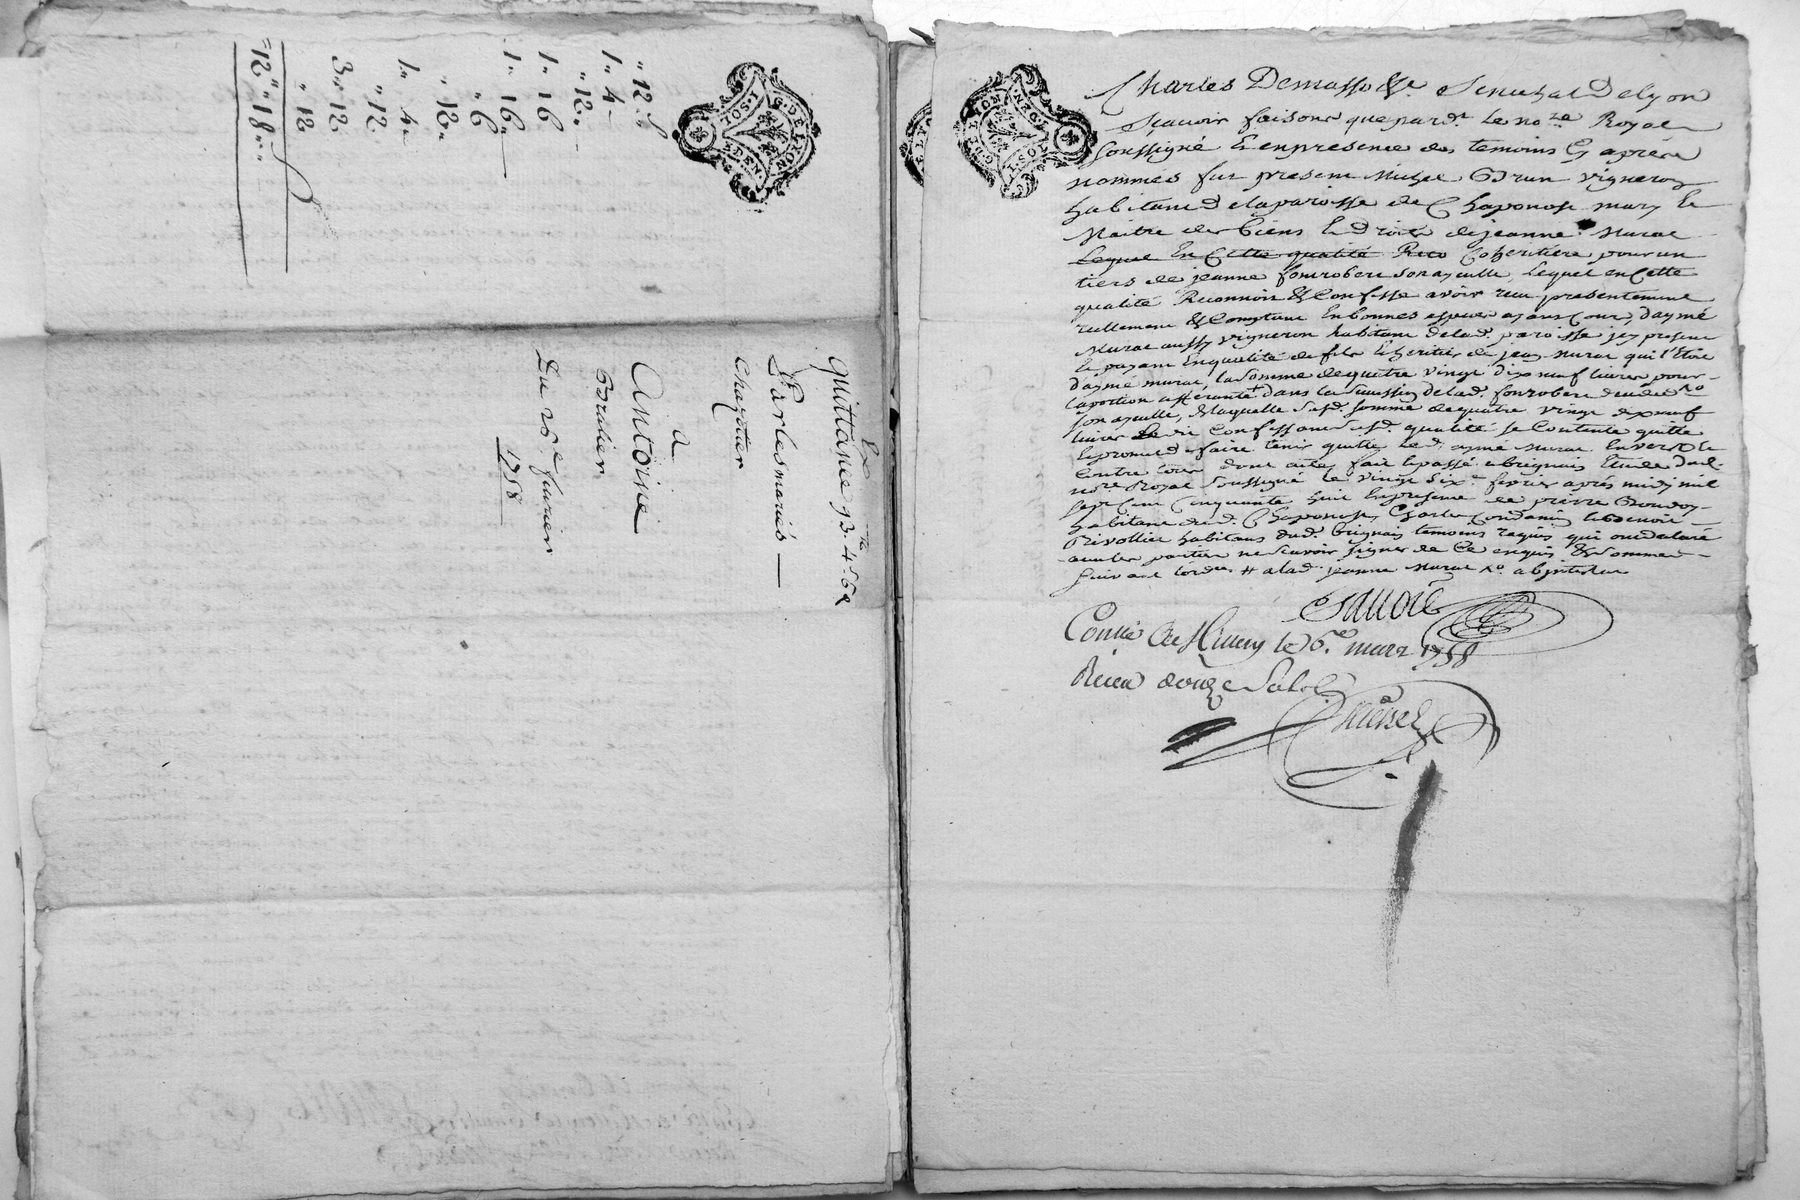 " 12 s
1 " 4
" 12 "
1 " 16
1 " 16 "
" 6
" 18 "
1 " 4 "
" 12
3 " 12
" 12
12 " 18 "
G. DE LYON
I. SOL
DEN
quittance 93
Par les mariés
Chazottier
a
Antoine
Bralier
Du 26e fevrier
1758
G. DE LYON
I. SOL
Charles Demasso &c Senechal De lyon
Sçavoir faisons que pard.t le no.re Royal
soussigné & en presence des temoins cy aprés
nommés fut present Michel Brun vigneron
habitant de la paroisse de Chaponost mary &
Maitre des biens & Droits de jeanne Murat
Lequel En Cette qualité Reco Coheritiere pour un
tiers de jeanne fonrobert son ayeulle Lequel en Cette
qualité Reconnoit & Confesse avoir reçu presentement
reellement & Comptant En bonnes especes ayant Cour, d'aymé
Murat aussy vigneron habitant de lad. paroisse icy present
& payant En qualité de fils & heritier de jean Murat qui l'Etoit
d'aymé murat, la somme de quatre vingt dix neuf livres pour
la portion afferante dans la Succession de lad. fonrobert
son ayeulle, De laquelle susd. somme de quatre vingt dix neuf
livres Confessant susd. qualité se Contente quitte
& promet faire tenir quitte led. aymé Murat Envers &
Contre tous dont acte, fait & passé a brignais Etude dud.
no.re Royal soussigné le vingt six.e fevrier aprés midy mil
sept Cent Cinquante huit En presence de pierre
habitant dud. Chaponost, Charles Condamin & benoit
Rivollier habitans dud. brignais temoins requis qui ont declaré
avec les parties ne Sçavoir signer de Ce enquis & sommés
suivant l'ord.ce # a lad. jeanne Murat
Conllé le 6e mars 1758
Reçu douze Sols